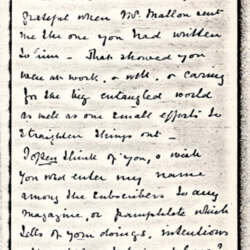 grateful when Mr. Mallon sent
me the one you had written
to him - That showed you
were at work, & well, & caring
for the big entangled world
as well as our small efforts to
straighten things out -
I often think of you, & wish
you wd enter my name
among the subscribers to any
magazine, or pamphlets which
tells of your doings, intentions